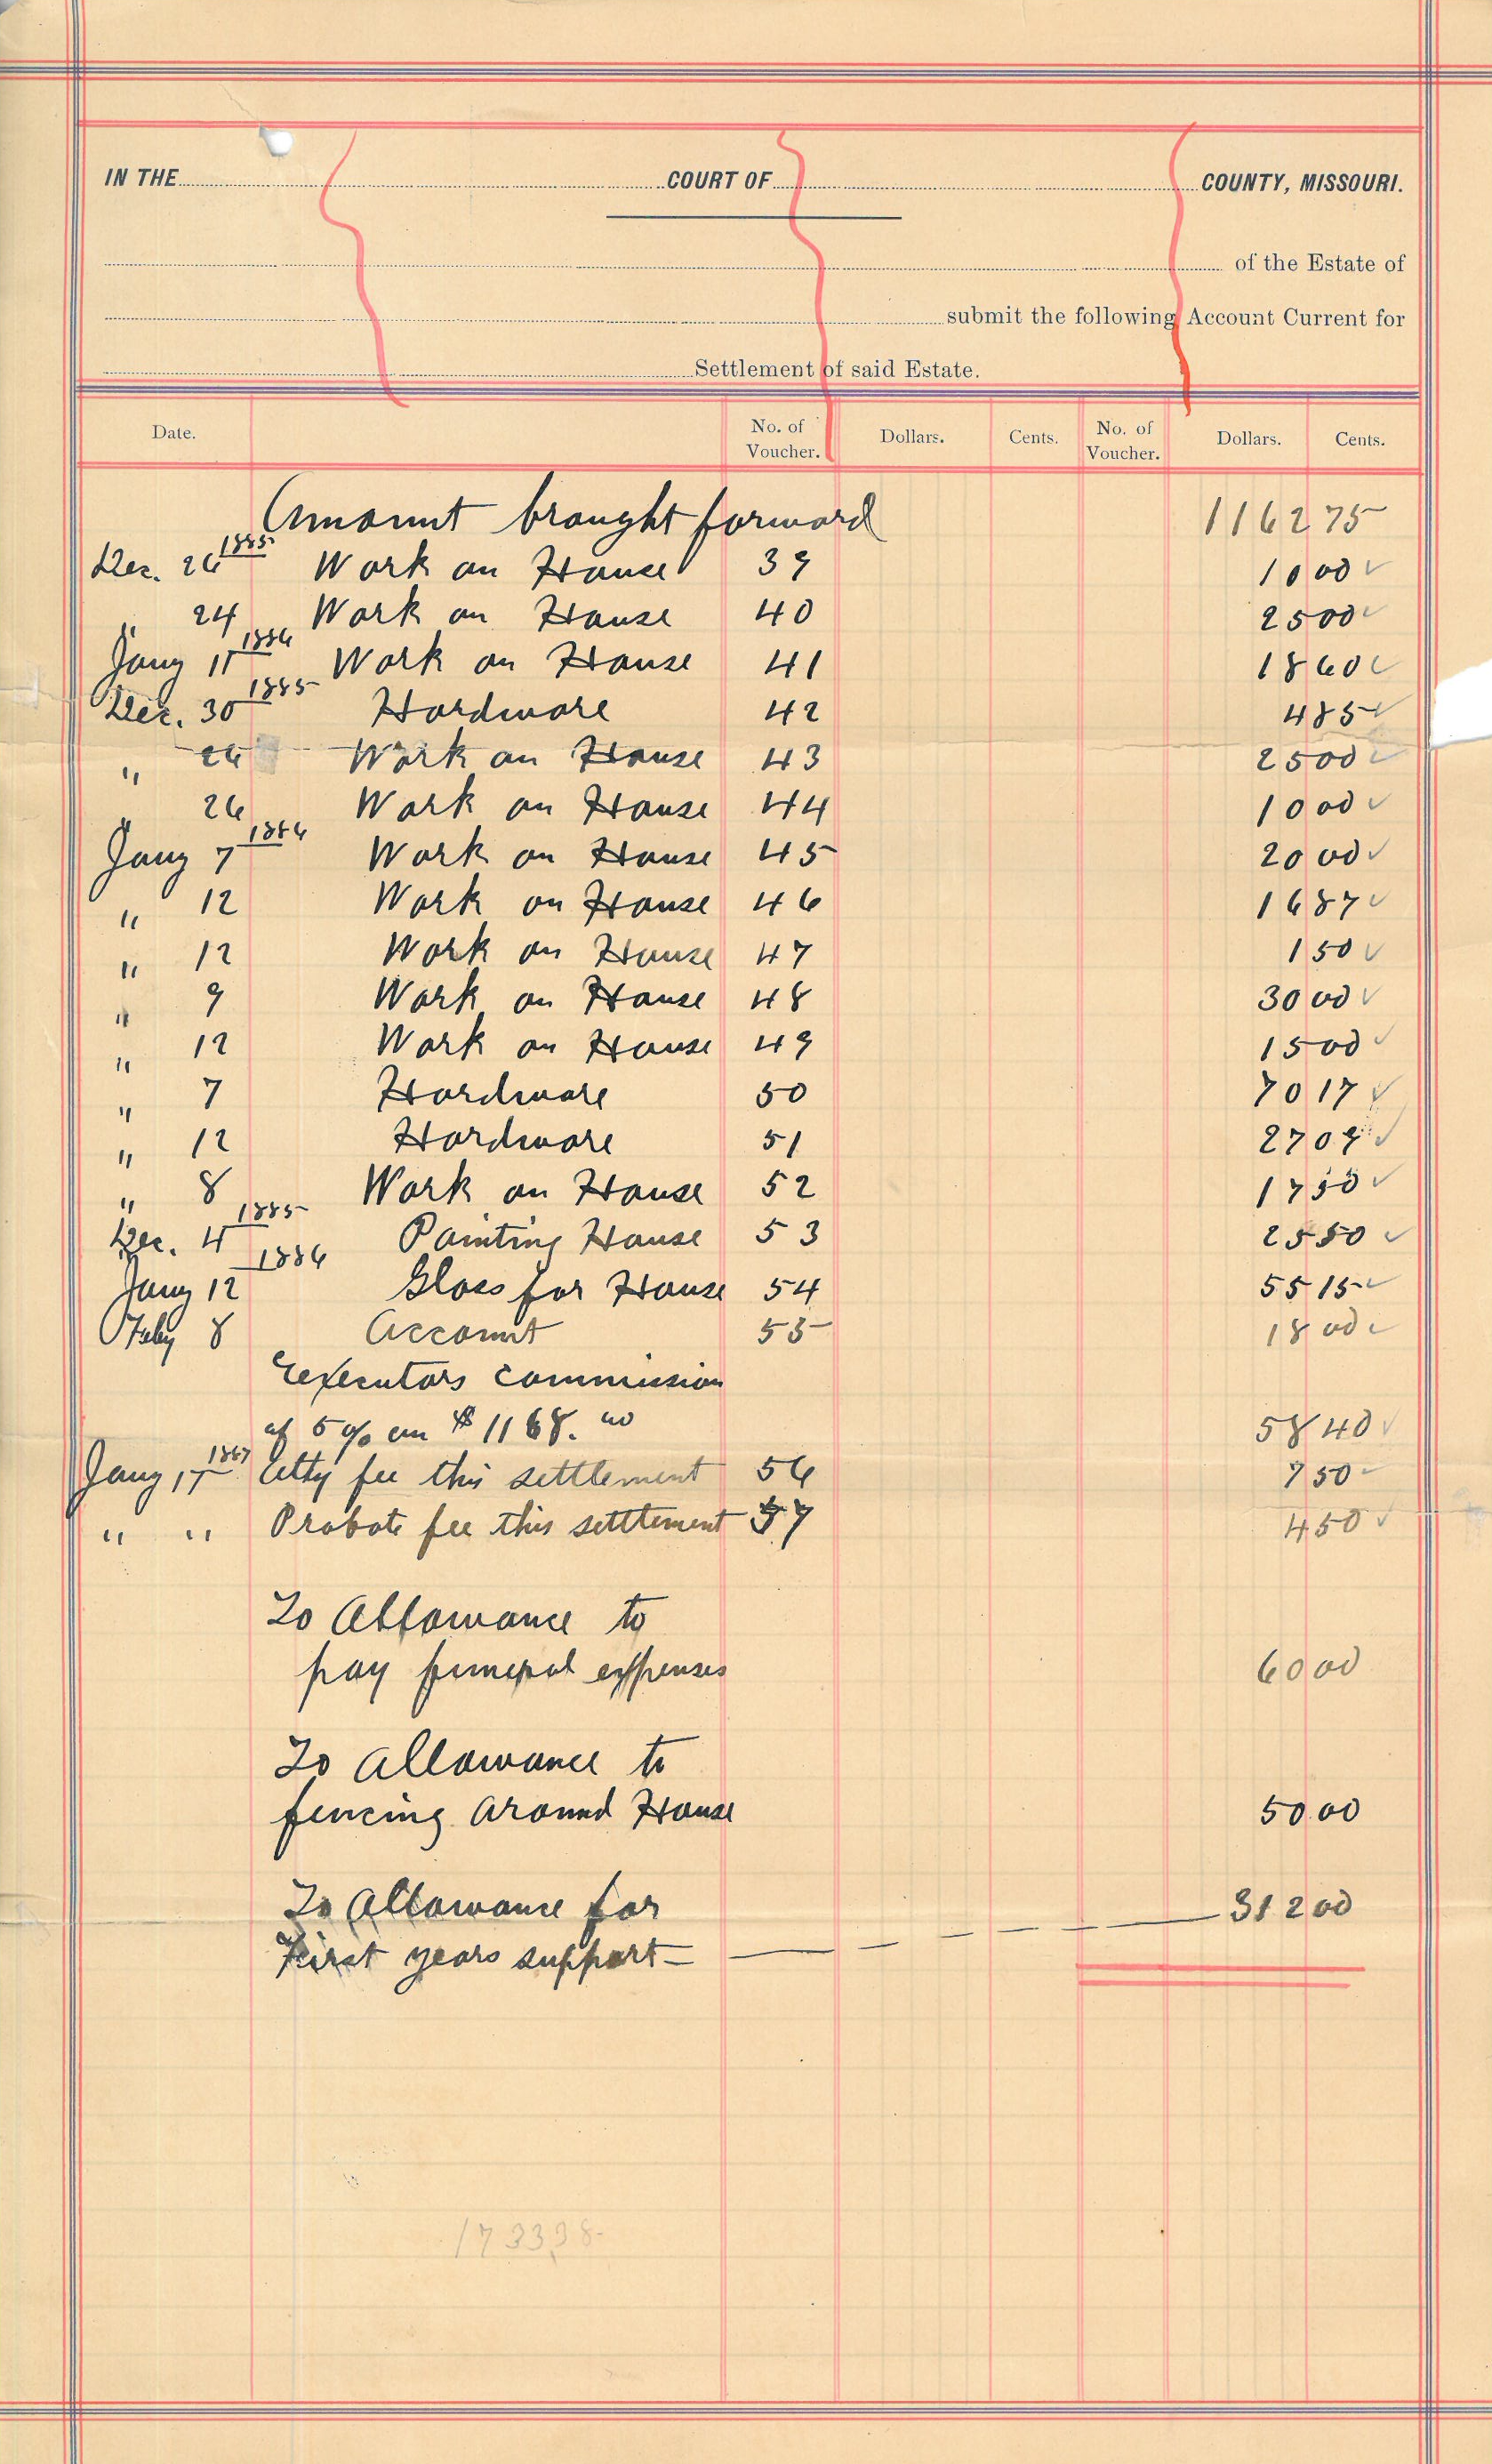 IN THE COURT OF COUNTY, MISSOURI.
of the Estate of
submit the following Account Current for
Settlement of said Estate.
Date. No. of Voucher. Dollars. Cents. No. of Voucher. Dollars. Cents.
Amount brought forward 1162 75
Dec. 26 1885 Work on House 39 10 00 ✓
" 24 Work on House 40 25 00 ✓
Jany 11 1886 Work on House 41 18 60 ✓
Dec. 30 1885 Hardware 42 4 85 ✓
" 26 Work on House 43 25 00 ✓
" 26 Work on House 44 10 00 ✓
Jany 7 1886 Work on House 45 20 00 ✓
" 12 Work on House 46 16 87 ✓
" 12 Work on House 47 1 50 ✓
" 9 Work on House 48 30 00 ✓
" 12 Work on House 49 15 00 ✓
" 7 Hardware 50 70 17 ✓
" 12 Hardware 51 27 09 ✓
" 8 Work on House 52 17 50 ✓
Dec. 4 1885 Painting House 53 25 50 ✓
Jany 12 1886 Glass for House 54 55 15 ✓
Feby 8 Account 55 18 00 ✓
Executors commission
of 5% on $1168.00 58 40 ✓
Jany 17 1887 Atty fee this settlement 56 7 50 ✓
" " Probate fee this setttement 57 4 50 ✓
To Allowance to
pay funeral expenses 60 00
To Allowance to
fencing around House 50 00
To Allowance for 312 00
First years support
173338